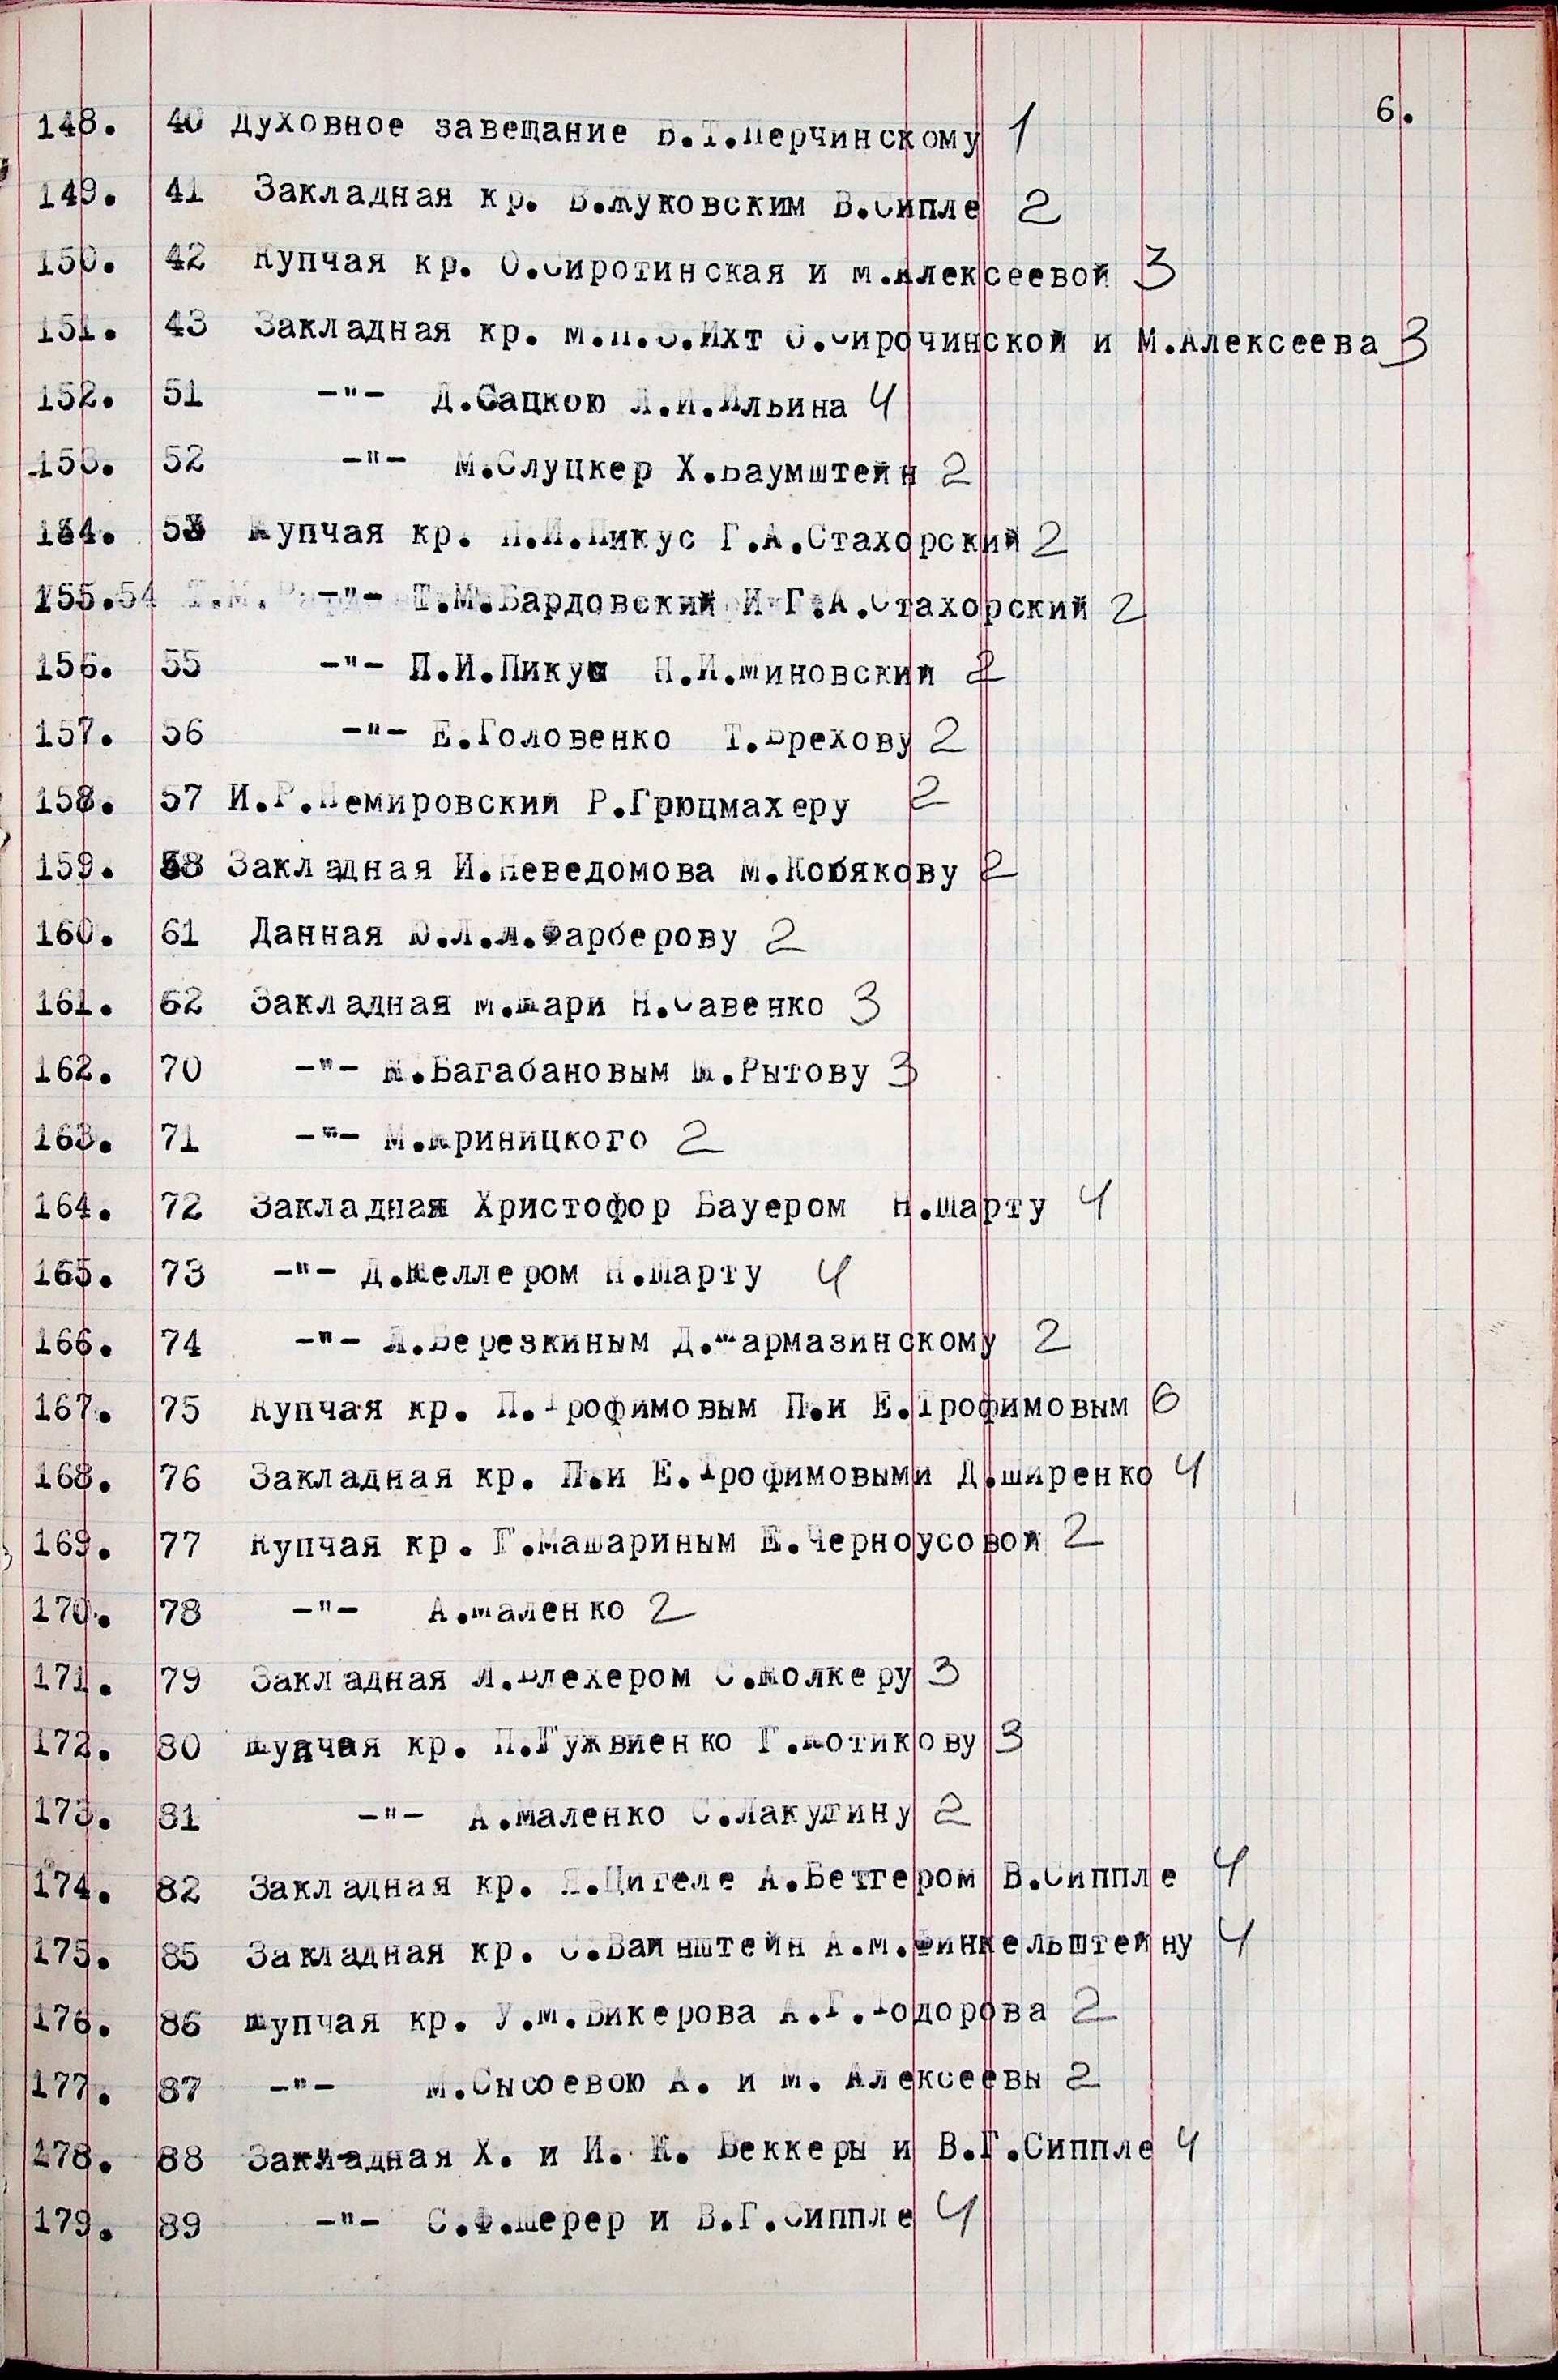 6.
148. 40 Духовное завещание В.Т.Перчинскому 1
149. 41 Закладная кр. В.Жуковским В.Сипле 2
150. 42 Купчая кр. О.Сиротинская и М.Алексеевой 3
151. 43 Закладная кр. М.П.З.Ихт О.Сирочинской и М.Алексеева 3
152. 51 -"- Д.Сацкою Л.И.Ильина 4
153. 52 -"- М.Слуцкер Х.Баумштейн 2
154. 53 Купчая кр. П.И.Пикус Г.А.Стахорский 2
155. 54 -"- Т.М.Бардовский И Г.А.Стахорский 2
156. 55 -"- П.И.Пикус Н.И.Миновский 2
157. 56 -"- Е.Головенко Т.Брехову 2
158. 57 И.Р.Немировский Р.Грюцмахеру 2
159. 58 Закладная И.Неведомова М.Кобякову 2
160. 61 Данная Ю.Л.Л.Фарберову 2
161. 62 Закладная М.Шари Н.Савенко 3
162. 70 -"- Н.Багабановым Ш.Рытову 3
163. 71 -"- М.Криницкого 2
164. 72 Закладная Христофор Бауером Н.Шарту 4
165. 73 -"- Д.Шеллером Н.Шарту 4
166. 74 -"- Л.Березкиным Д.Шармазинскому 2
167. 75 Купчая кр. П.Трофимовым П.и Е.Трофимовым 6
168. 76 Закладная кр. П.и Е.Трофимовыми Д.Ширенко 4
169. 77 Купчая кр. Г.Машариным Е.Черноусовой 2
170. 78 -"- А.Маленко 2
171. 79 Закладная Л.Блехером С.Шолкеру 3
172. 80 Шупчая кр. П.Гужвиенко Г.Котикову 3
173. 81 -"- А.Маленко С.Лакушину 2
174. 82 Закладная кр. Я.Цигеле А.Беттером В.Сиппле 4
175. 85 Закладная кр. С.Вайнштейн А.М.Финкельштейну 4
176. 86 Шупчая кр. У.М.Викерова А.Г.Тодорова 2
177. 87 -"- М.Сысоевою А. и М. Алексеевы 2
178. 88 Закладная Х. и И. К. Беккеры и В.Г.Сиппле 4
179. 89 -"- С.Ф.Шерер и В.Г.Сиппле 4